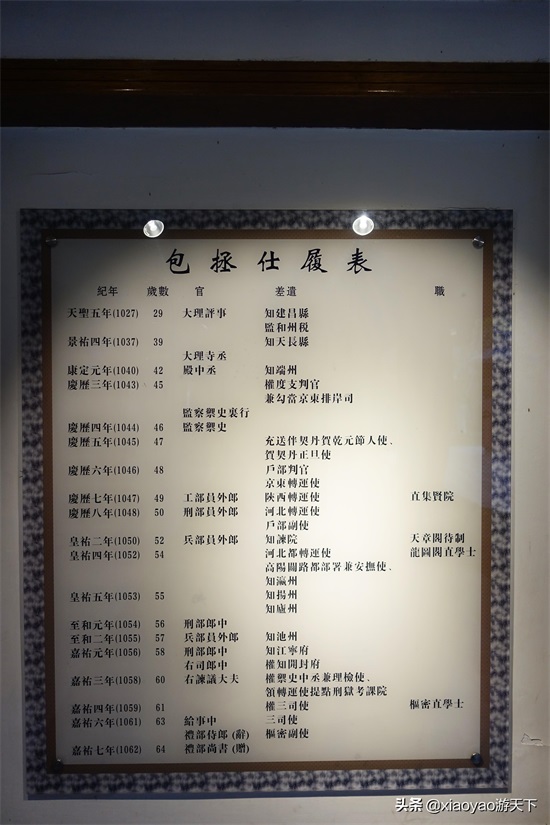 包拯仕履表
紀年 歲數 官 差遣 職
天聖五年(1027) 29 大理評事 知建昌縣
監和州税
景祐四年(1037) 39 知天長縣
大理寺丞
康定元年(1040) 42 殿中丞 知端州
慶歷三年(1043) 45 權度支判官
兼勾當京東排岸司
監察禦史裏行
慶歷四年(1044) 46 監察禦史
慶歷五年(1045) 47 充送伴契丹賀乾元節人使、
賀契丹正旦使
慶歷六年(1046) 48 戶部判官
京東轉運使
慶歷七年(1047) 49 工部員外郎 陝西轉運使 直集賢院
慶歷八年(1048) 50 刑部員外郎 河北轉運使
戶部副使
皇祐二年(1050) 52 兵部員外郎 知諫院 天章閣待制
皇祐四年(1052) 54 河北都轉運使 龍圖閣直學士
高陽關路都部署兼安撫使、
知瀛州
皇祐五年(1053) 55 知揚州
知廬州
至和元年(1054) 56 刑部郎中
至和二年(1055) 57 兵部員外郎 知池州
嘉祐元年(1056) 58 刑部郎中 知江寧府
右司郎中 權知開封府
嘉祐三年(1058) 60 右諫議大夫 權禦史中丞兼理檢使、
領轉運使提點刑獄考課院
嘉祐四年(1059) 61 權三司使 樞密直學士
嘉祐六年(1061) 63 給事中 三司使
禮部侍郎(辭) 樞密副使
嘉祐七年(1062) 64 禮部尚書(贈)
头条 @xiaoyao游天下